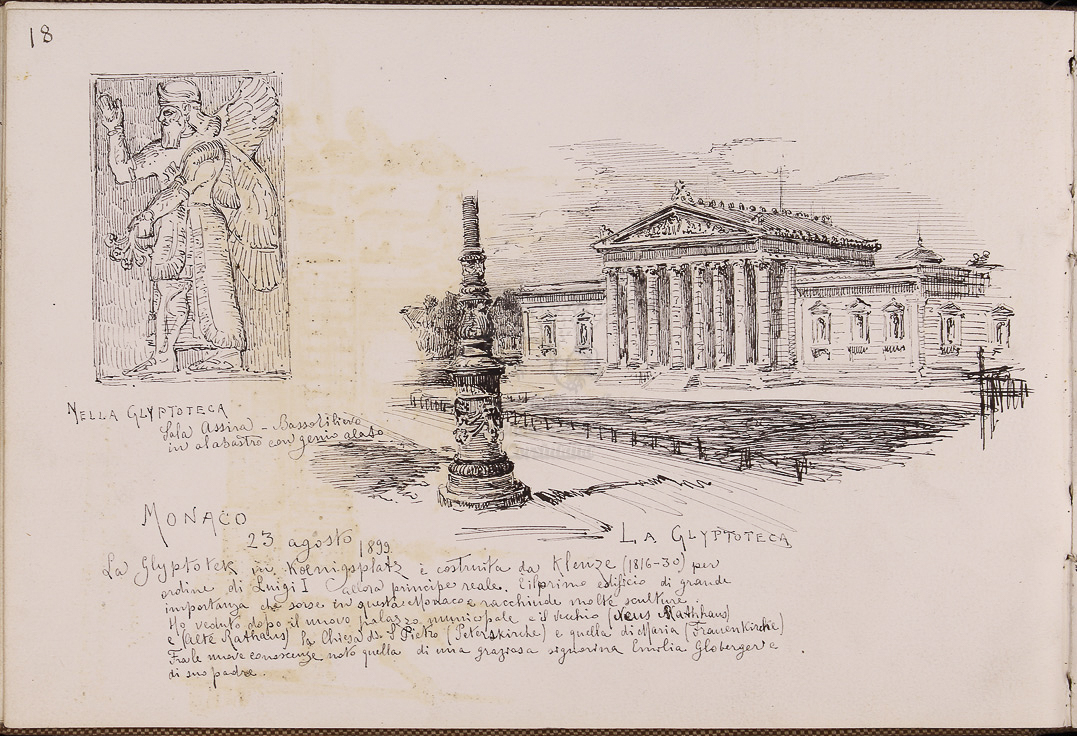 18
NELLA GLYPTOTECA
Sala Assira - Bassorilievo
in alabastro con genio alato
MONACO
23 agosto 1899
LA GLYPTOTECA
La Glyptotek in Koenigsplatz è costruita da Klenze (1816-30) per
ordine di Luigi I allora principe reale. E il primo edificio di grande
importanza che sorse in questa Monaco e racchiude molte sculture.
Ho veduto dopo il nuovo palazzo municipale e il vecchio (Neus Rathhaus)
e (Alte Rathaus) la Chiesa di S. Pietro (Peterskirche) e quella di Maria (Frauenkirche)
Fra le nuove conoscenze noto quella di una graziosa signorina Emilia Globerger e
di suo padre.